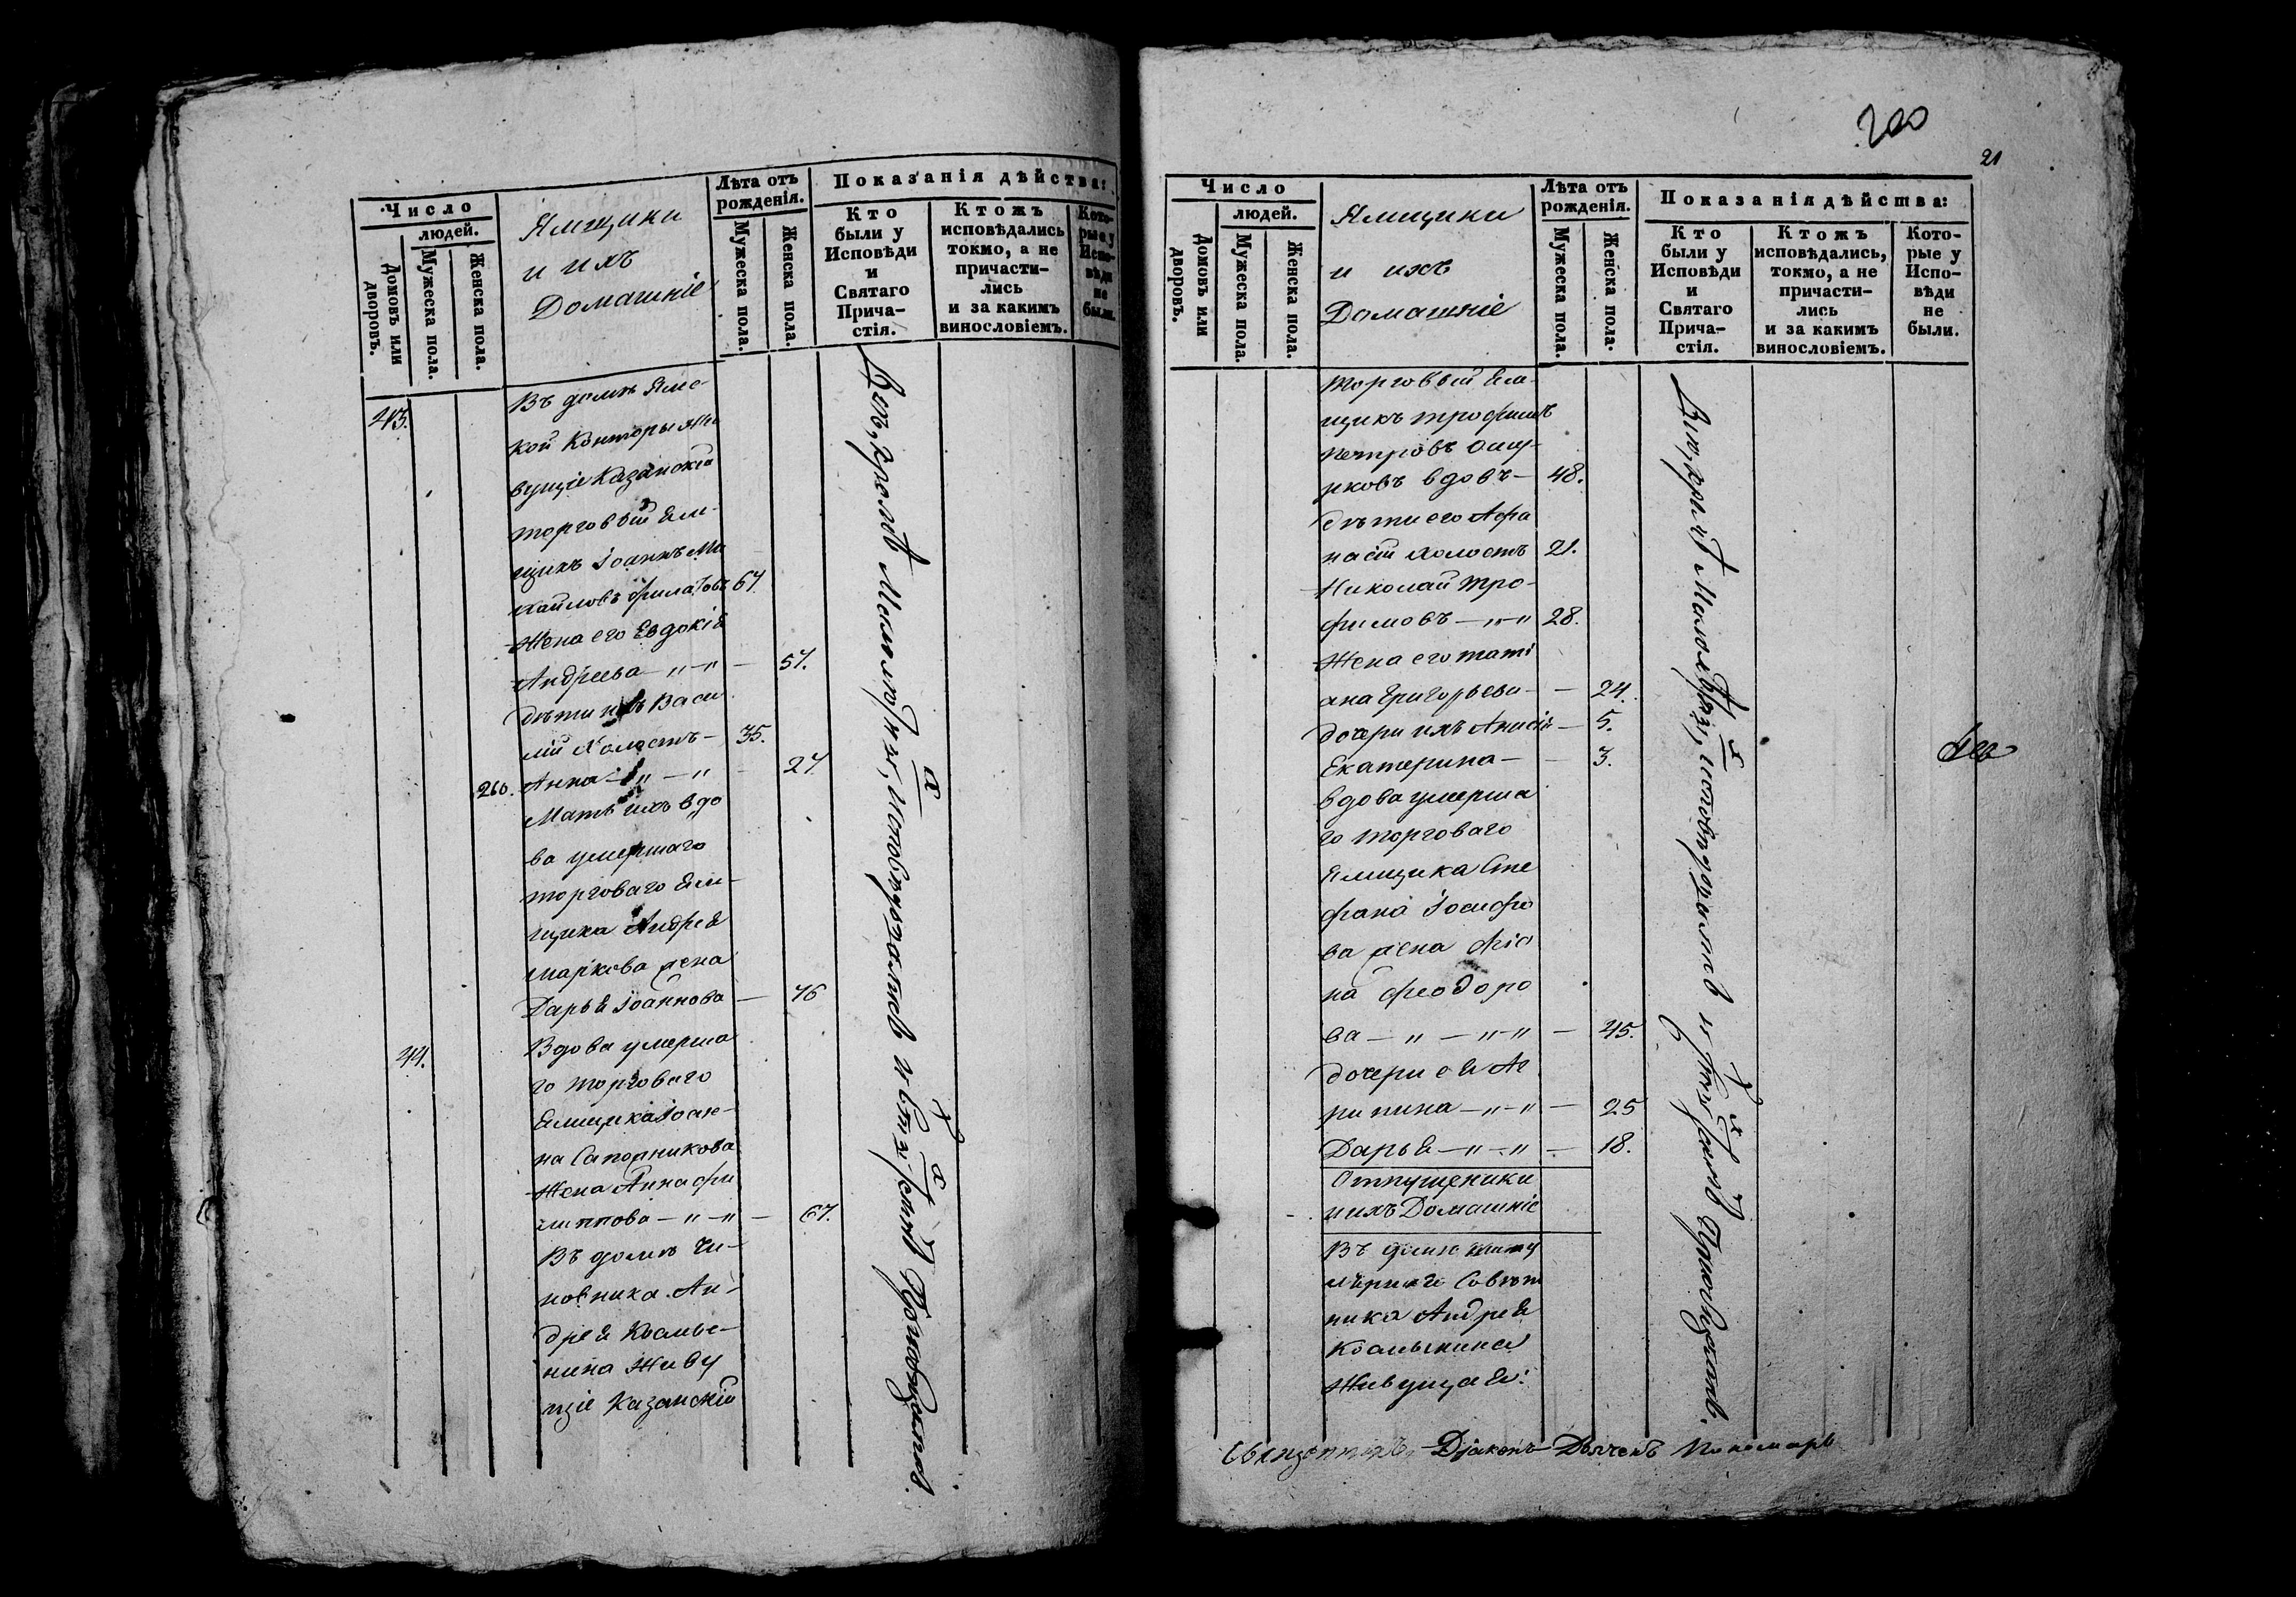 Число
людей.
Домовъ или дворовъ.
Мужеска пола.
Женска пола.
Ямщики
и ихъ
Домашніе
Лѣта отъ рожденія.
Мужеска пола.
Женска пола.
Показанія дѣйства:
Кто были у Исповѣди и Святаго Прича-стія.
Ктожъ исповѣдались токмо, а не причасти-лись и за какимъ винословіемъ.
Кото-рые у Испо-вѣди не были.
43.
Въ домѣ Ямс-
кой Конторы жи
вущіе Казанскій
торговый Ям-
щикъ Іоаннъ Ми
хайловъ Филатовъ 67
Жена его Евдокія
Андреева — „ — „ — 57.
дѣти ихъ Васи
лій Холостъ — 35.
260. Анна — „ — „ — 27
Мать ихъ вдо
ва умершаго
торговаго Ям-
щика Андрея
Маркова жена
Дарья Іоаннова — 76
44.
Вдова умерша
го торговаго
Ямщика Іоан-
на Сапожникова
Жена Анна Фи
липпова — „ — „ — 67.
Въ домѣ Чи-
новника Ан-
дрея
нина Живу
щіе Казанскій
исповѣдались и Святыхъ
200
21
Число
людей.
Домовъ или дворовъ.
Мужеска пола.
Женска пола.
Ямщики
и ихъ
Домашніе
Лѣта отъ рожденія.
Мужеска пола.
Женска пола.
Показанія дѣйства:
Кто были у Исповѣди и Святаго Прича-стія.
Ктожъ исповѣдались, токмо, а не причасти-лись и за какимъ винословіемъ.
Кото-рые у Испо-вѣди не были.
торговый Ям-
щикъ Трофимъ
Петровъ Ошу-
рковъ вдовъ — 48.
дѣти его Афа
насій холостъ 21.
Николай Тро-
фимовъ — „ — „ 28.
Жена его Тати
ана Григорьева — — 24.
дочери ихъ Анисія — 5.
Екатерина — — 3.
вдова умерша
го торговаго
Ямщика Сте
фана Іосифо
ва жена
на Феодоро
ва — „ — „ — „ — 45.
дочери ея Аг
рипина — „ — „ — 25
Дарья — „ — „ — 18.
Отпущеники
и ихъ Домашніе
Въ домѣ Титу
лярнаго Совѣт
ника Андрея
Живущая:
исповѣдались и
Священникъ Діаконъ Дьячекъ Пономарь